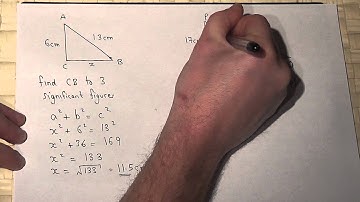 A
6cm
13cm
C
x
B
find CB to 3
significant figures
a² + b² = c²
x² + 6² = 13²
x² + 36 = 169
x² = 133
x = √133 = 11.5c
17c